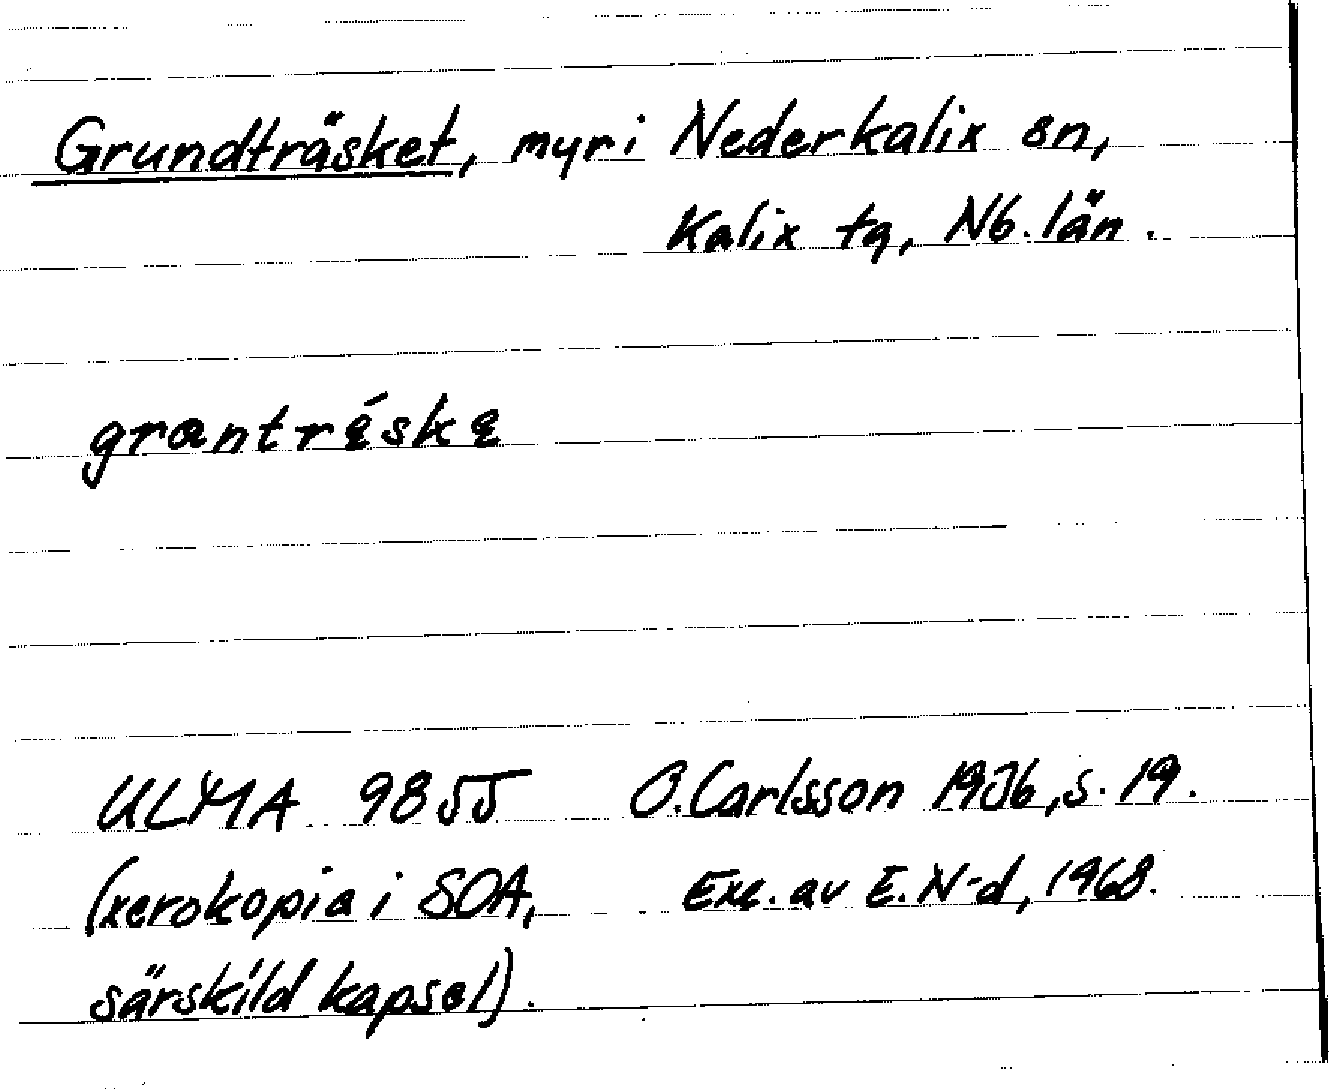 Grundträsket, myr i Nederkalix sn,
Kalix tg, Nb. län.
grantręskę
ULMA 9855 O. Carlsson 1936, s. 19.
(xerokopia i SOA, Exc. av E. N-d, 1968.
särskild kapsel).